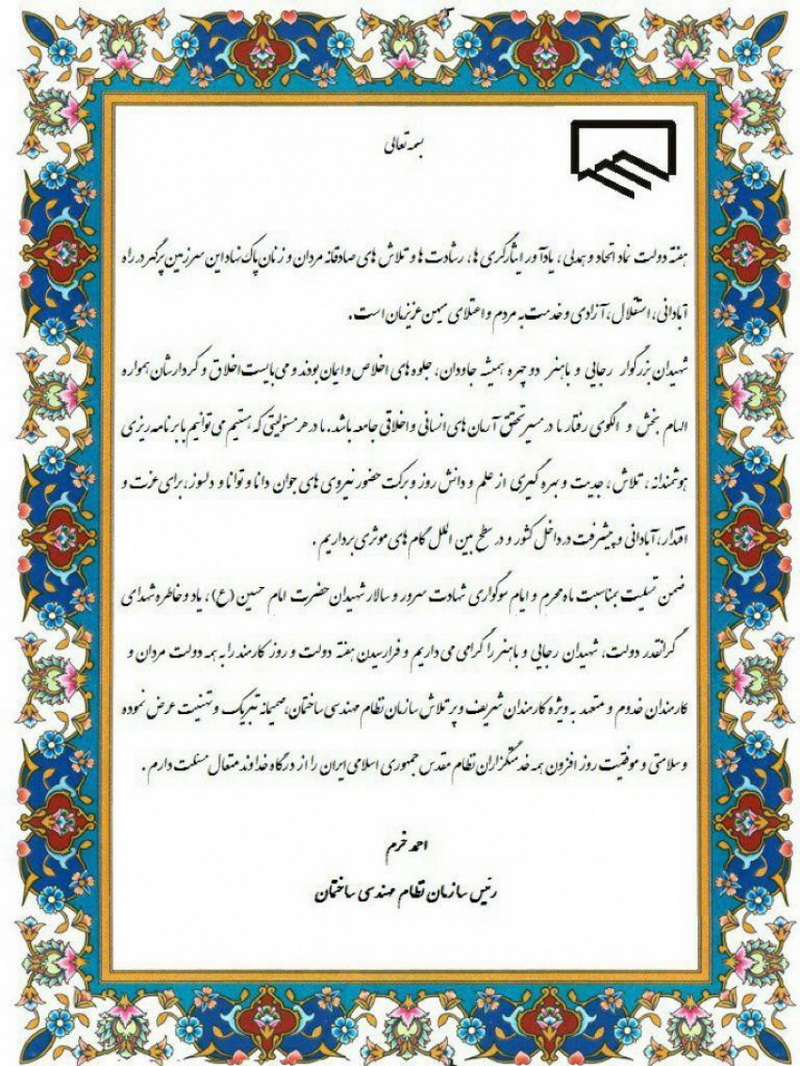 بسمه تعالی
هفته دولت نماد اتحاد و همدلی، یادآور ایثارگری ها، رشادت ها و تلاش های صادقانه مردان و زنان پاک نهاد این سرزمین پرگهر در راه
آبادانی، استقلال، آزادی و خدمت به مردم و اعتلای میهن عزیزمان است.
شهیدان بزرگوار رجایی و باهنر دو چهره همیشه جاودان، جلوه های اخلاص و ایمان بودند و می بایست اخلاق و کردارشان همواره
الهام بخش و الگوی رفتار ما در مسیر تحقق آرمان های انسانی و اخلاقی جامعه باشد. ما در هر مسئولیتی که هستیم می توانیم با برنامه ریزی
هوشمندانه، تلاش، جدیت و بهره گیری از علم و دانش روز و برکت حضور نیروی های جوان دانا و توانا و دلسوز، برای عزت و
اقتدار، آبادانی و پیشرفت در داخل کشور و در سطح بین الملل گام های موثری برداریم.
ضمن تسلیت بمناسبت ماه محرم و ایام سوگواری شهادت سرور و سالار شهیدان حضرت امام حسین (ع)، یاد و خاطره شهدای
گرانقدر دولت، شهیدان رجایی و باهنر را گرامی می داریم و فرارسیدن هفته دولت و روز کارمند را به همه دولت مردان و
کارمندان خدوم و متعهد به ویژه کارمندان شریف و پر تلاش سازمان نظام مهندسی ساختمان، صمیمانه تبریک و تهنیت عرض نموده
و سلامتی و موفقیت روز افزون همه خدمتگزاران نظام مقدس جمهوری اسلامی ایران را از درگاه خداوند متعال مسئلت دارم.
احمد خرم
رئیس سازمان نظام مهندسی ساختمان